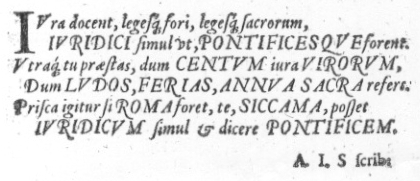 IVra docent, legesq́; fori, legesq́; sacrorum,
IVRIDICI simul vt, PONTIFICESQVE forent.
Vtraq́; tu præstas, dum CENTVM iura VIRORVM,
Dum LVDOS, FERIAS, ANNVA SACRA refers.
Prisca igitur si ROMA foret, te, SICCAMA, posset
IVRIDICVM simul & dicere PONTIFICEM.
A. I. S scribe